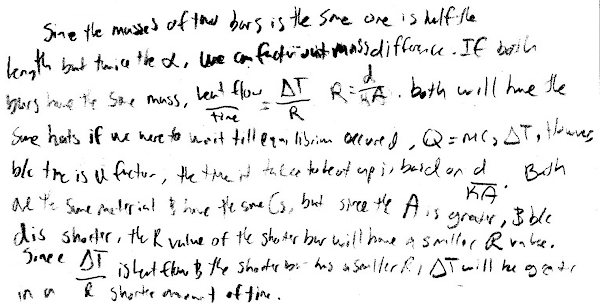 Since the masses of two bars is the same one is half the
length but twice the d, we can factor out mass difference. If both
bars have the same mass, heat flow / time = ΔT / R R = d / KA. both will have the
same heats if we were to wait till equilibrium occured, Q = mCs ΔT, However
b/c time is a factor, the time it takes to heat up is based on d / KA. Both
are the same material & have the same Cs, but since the A is greater, & b/c
d is shorter, the R value of the shorter bar will have a smaller R value.
Since ΔT / R is heat flow & the shorter bar has a smaller R, ΔT will be greater
in a shorter amount of time.